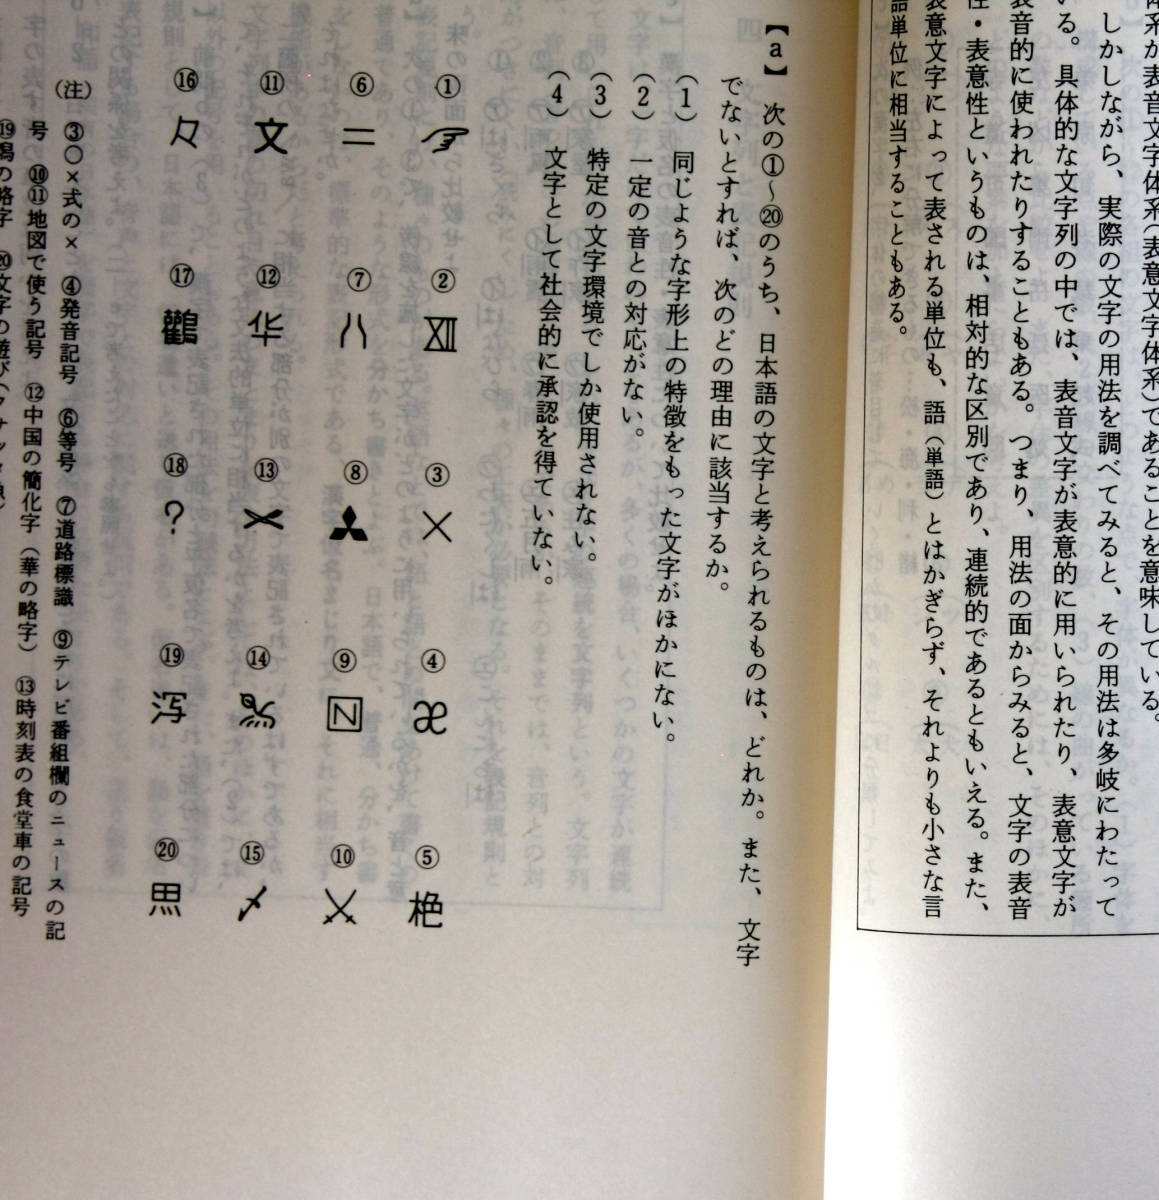 体系が表音文字体系(表意文字体系)であることを意味している。
しかしながら、実際の文字の用法を調べてみると、その用法は多岐にわたって
いる。具体的な文字列の中では、表音文字が表意的に用いられたり、表意文字が
表音的に使われたりすることもある。つまり、用法の面からみると、文字の表音
性・表意性というものは、相対的な区別であり、連続的であるともいえる。また、
表意文字によって表される単位も、語(単語)とはかぎらず、それよりも小さな言
語単位に相当することもある。
【a】 次の①〜⑳のうち、日本語の文字と考えられるものは、どれか。また、文字
でないとすれば、次のどの理由に該当するか。
(1) 同じような字形上の特徴をもった文字がほかにない。
(2) 一定の音との対応がない。
(3) 特定の文字環境でしか使用されない。
(4) 文字として社会的に承認を得ていない。
① ☞ ② Ⅻ ③ × ④ æ ⑤
⑥ = ⑦ ⑧ ⑨ N ⑩ ⚔
⑪ 文 ⑫ 华 ⑬ ⑭ ⑮ 〆
⑯ 々 ⑰ 鸛 ⑱ ? ⑲ 泻 ⑳
(注) ③○×式の× ④発音記号 ⑥等号 ⑦道路標識 ⑨テレビ番組欄のニュースの記
号 ⑩⑪地図で使う記号 ⑫中国の簡化字(華の略字) ⑬時刻表の食堂車の記号
⑲潟の略字 ⑳文字の遊び